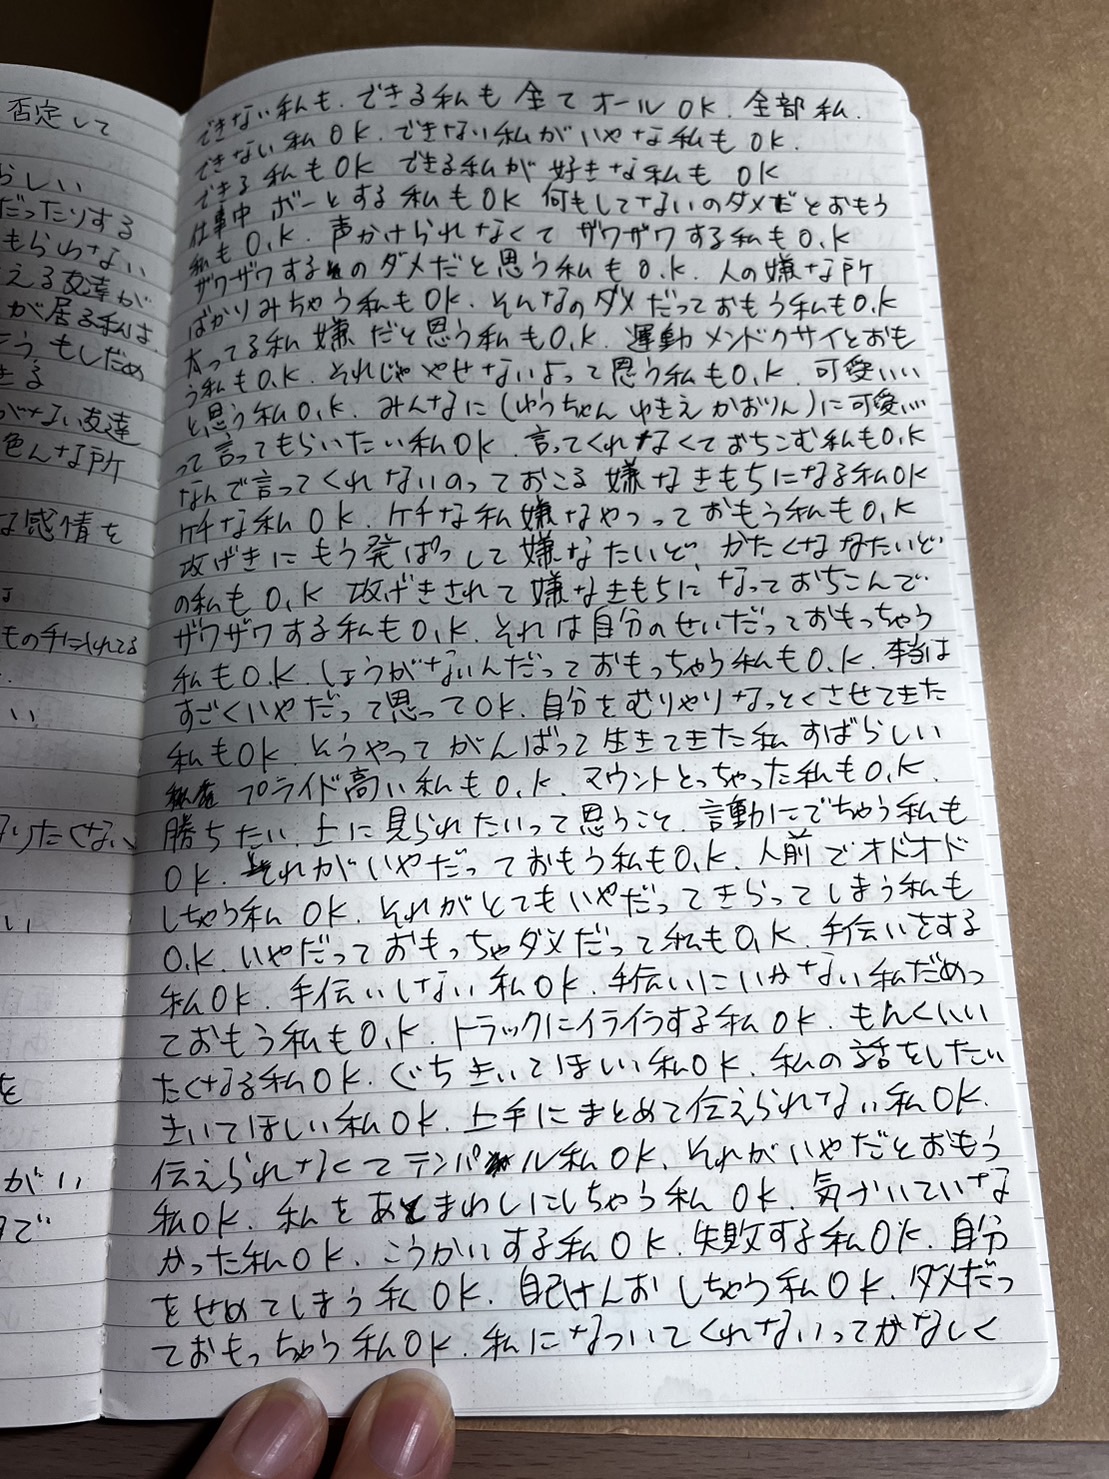 否定して
らしい
だったりする
もらわない
える友達が
が居る私は
もしだめ
きる
がない友達
色んな所
な感情を
もの手に入れてる
い
りたくない
い
を
がい
で
できない私も、できる私も 全て オール OK. 全部 私.
できない私 OK. できない私がいやな私も OK.
できる 私もOK できる私が 好きな私も OK
仕事中 ボーとする 私もOK 何もしてないのダメだとおもう
私も O.K. 声かけられなくて ザワザワする私もO.K
ザワザワするのダメだと思う私もO.K. 人の嫌な所
ばかりみちゃう私もOK. そんなのダメだっておもう私もO.K
太ってる私 嫌だと思う私もO.K. 運動 メンドクサイとおも
う私もO.K. それじゃやせないよって思う私もO.K. 可愛いい
と思う私O.K. みんなに(ゆうちゃん ゆきえ かおりん)に可愛い
って言ってもらいたい私OK. 言ってくれなくておちこむ私もO.K
なんで言ってくれないのっておこる 嫌なきもちになる私OK
ケチな私 OK. ケチな私嫌なやつっておもう私もO.K
攻げきにもう発ぱつして嫌なたいど、かたくななたいど
の私も O.K 攻げきされて嫌なきもちになっておちこんで
ザワザワする私もO.K. それは自分のせいだっておもっちゃう
私もO.K. しょうがないんだっておもっちゃう私もO.K. 本当は
すごくいやだって思ってOK. 自分をむりやりなっとくさせてきた
私もOK. そうやってがんばって生きてきた私すばらしい
プライド高い私もO.K. マウントとっちゃった私もO.K.
勝ちたい、上に見られたいって思うこと、言動にでちゃう私も
OK. それがいやだっておもう私もO.K. 人前でオドオド
しちゃう私 OK. それがとてもいやだってきらってしまう私も
O.K. いやだっておもっちゃダメだって私もO.K. 手伝いをする
私OK. 手伝いしない私OK. 手伝いにいかない私だめっ
ておもう私もO.K. トラックにイライラする私OK. もんくいい
たくなる私OK. ぐちきいてほしい私OK. 私の話をしたい
きいてほしい私OK. 上手にまとめて伝えられない私OK.
伝えられなくてテンパル私OK. それがいやだとおもう
私OK. 私をあとまわしにしちゃう私 OK. 気づいていな
かった私OK. こうかいする私OK. 失敗する私OK. 自分
をせめてしまう私OK. 自己けんおしちゃう私OK. ダメだっ
ておもっちゃう私OK. 私になついてくれないってかなしく